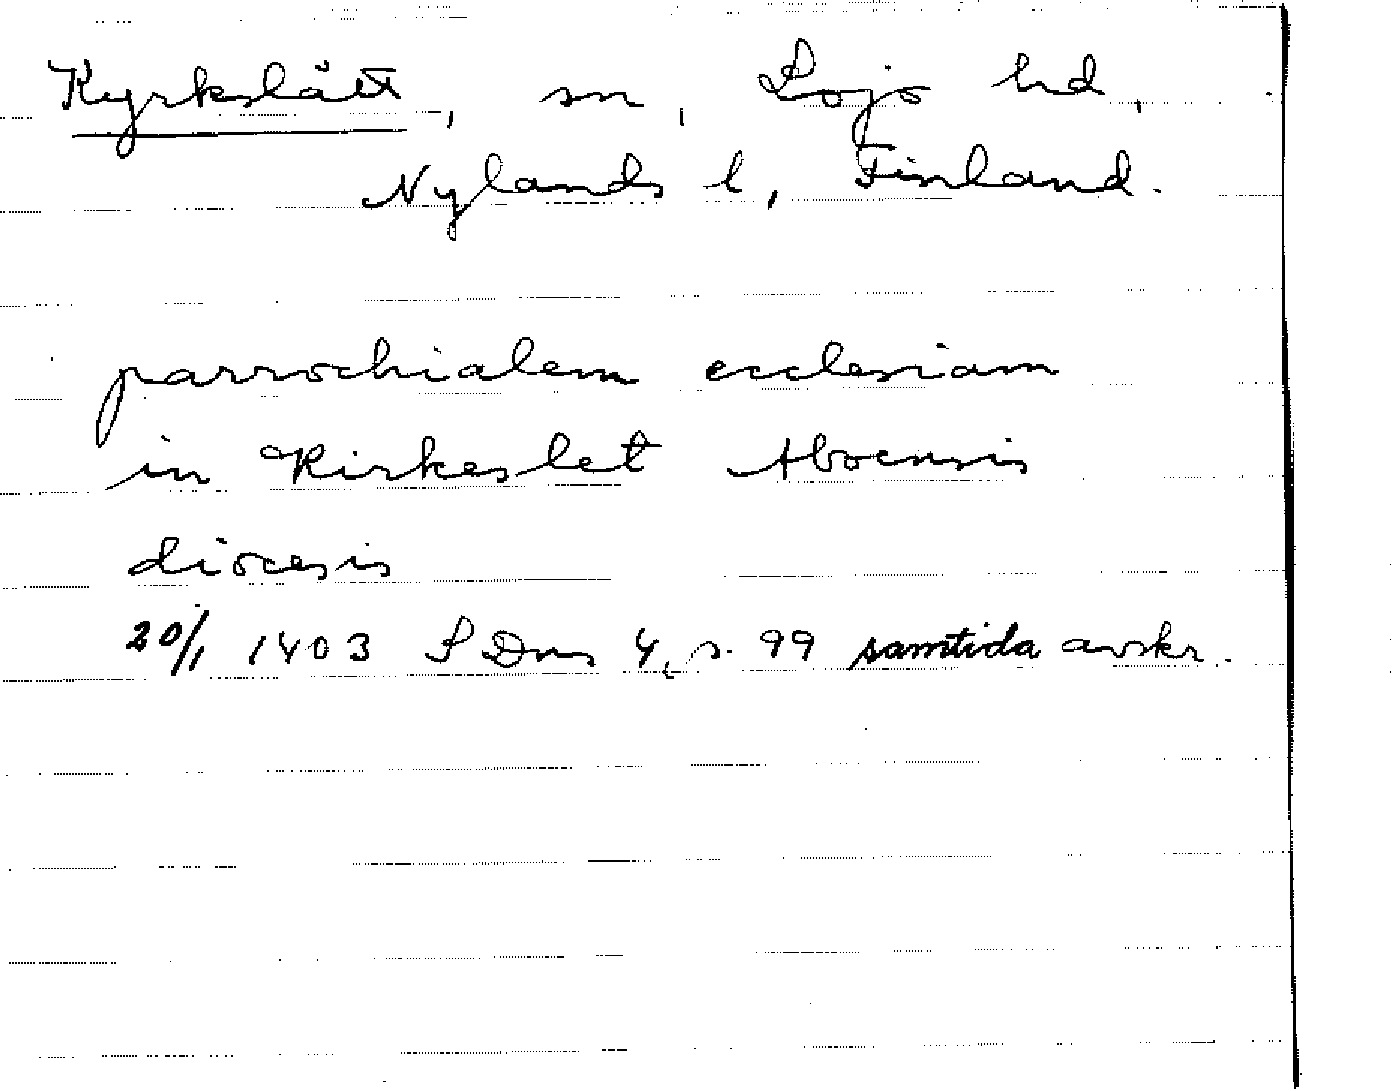 Kyrkslätt, sn, Lojo hd,
Nylands l, Finland.
parrochialem ecclesiam
in Kirkeslet Aboensis
diocesis
20/1 1403 S Dns 4, s. 99 samtida avskr.